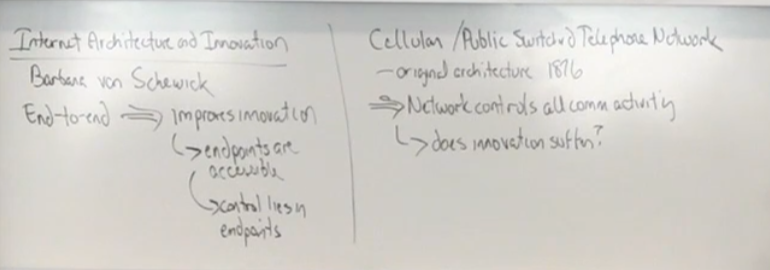 Internet Architecture and Innovation
Barbara von Schewick
End-to-end ⇒ improves innovation
↳ endpoints are
accessible
↳ control lies in
endpoints
Cellular / Public Switched Telephone Network
- original architecture 1876
⇒ Network controls all comm activity
↳ does innovation suffer?